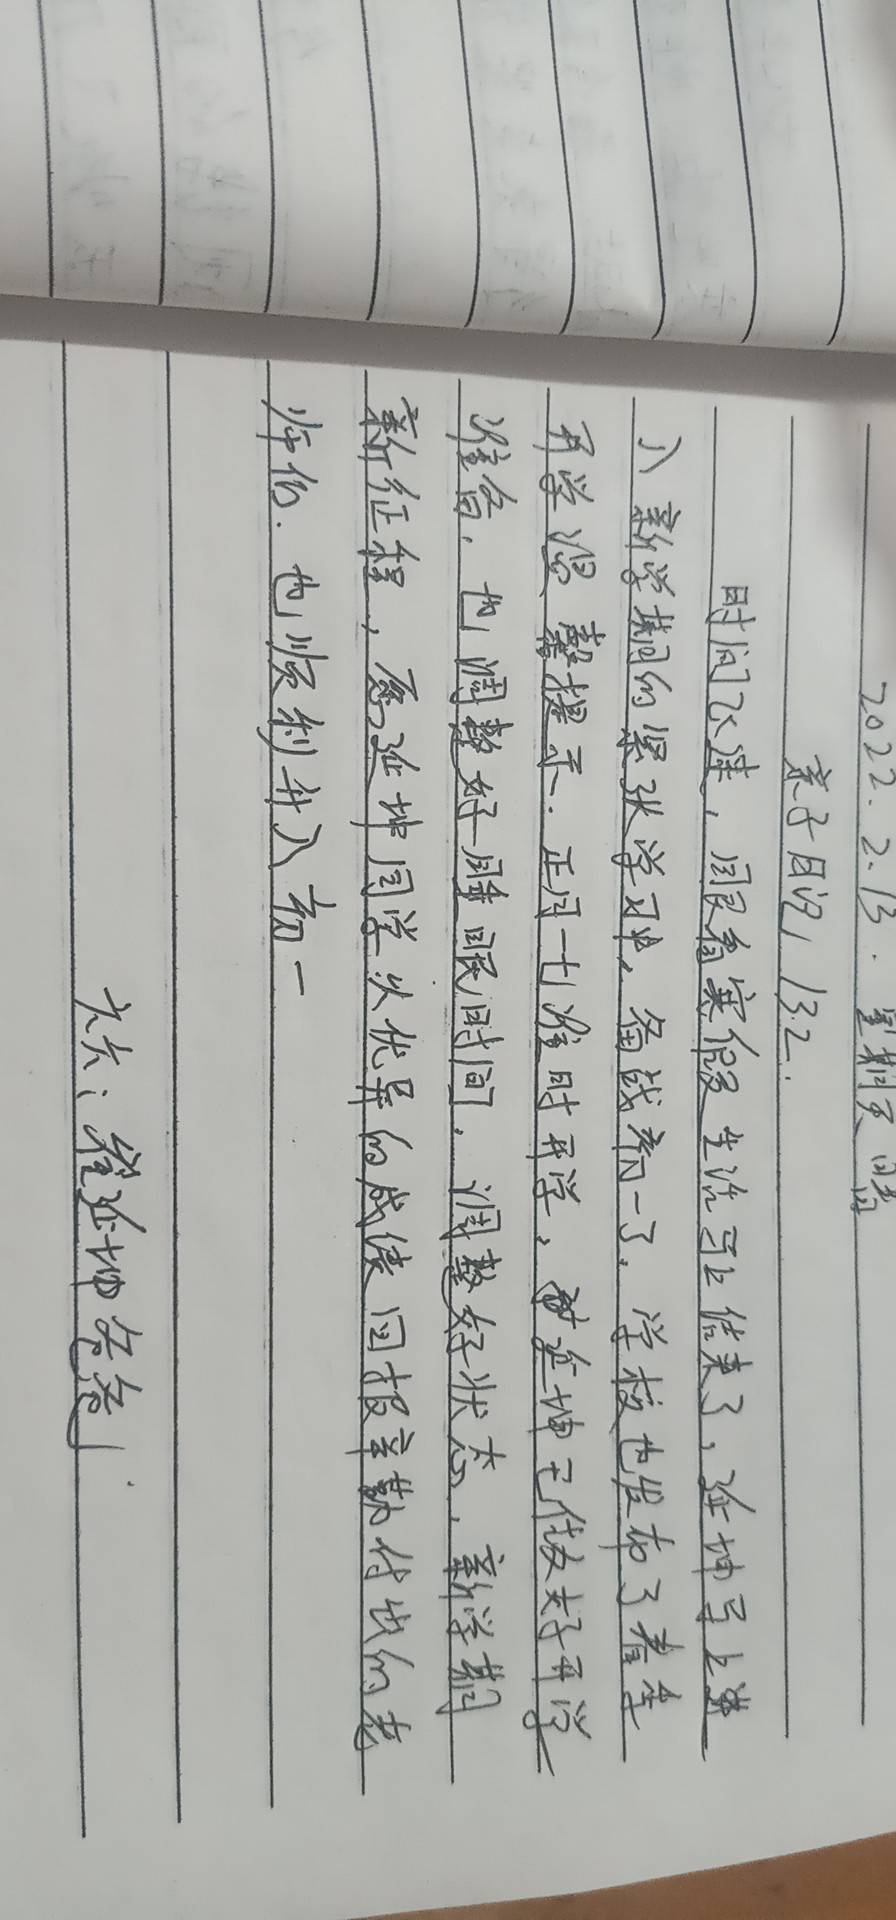 2022.2.13. 星期天 阴
亲子日记 132.
时间飞逝，眼看寒假生活马上结束了，延坤马上进
入新学期的紧张学习中，备战初一了，学校也发布了春季
开学温馨提示，正月十七准时开学，延坤已做好开学
准备，也调整好睡眠时间，调整好状态，新学期
新征程，愿延坤同学以优异的成绩回报辛勤付出的老
师们，也顺利升入初一
六六：程延坤爸爸